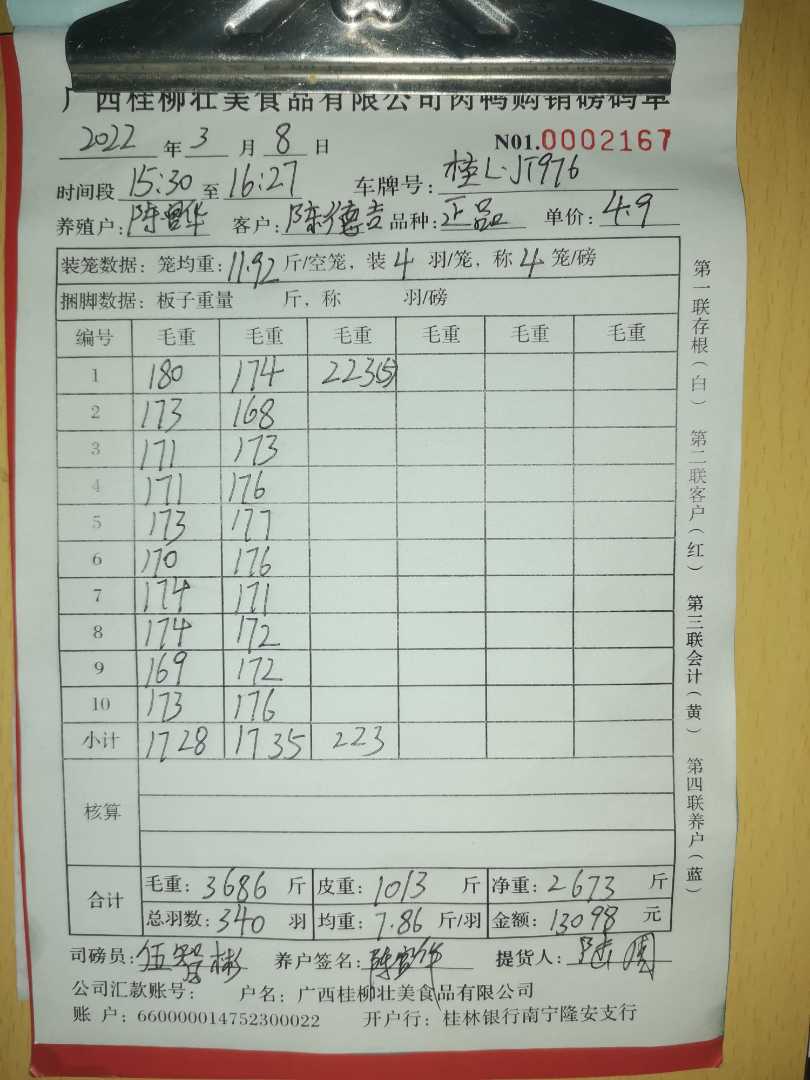 广西桂柳壮美食品有限公司肉鸭购销磅码单
2022 年 3 月 8 日 N01.0002167
时间段 15:30 至 16:27 车牌号: 桂L·JT976
养殖户: 陈曾华 客户: 陈德吉 品种: 正品 单价: 4.9
装笼数据: 笼均重: 11.92 斤/空笼, 装 4 羽/笼, 称 4 笼/磅
捆脚数据: 板子重量 斤, 称 羽/磅
编号 毛重 毛重 毛重 毛重 毛重 毛重
1 180 174 223(5)
2 173 168
3 171 173
4 171 176
5 173 177
6 170 176
7 174 171
8 174 172
9 169 172
10 173 176
小计 1728 1735 223
核算
合计 毛重: 3686 斤 皮重: 1013 斤 净重: 2673 斤
总羽数: 340 羽 均重: 7.86 斤/羽 金额: 13098 元
司磅员: 伍 彬 养户签名: 陈 华 提货人:
公司汇款账号: 户名: 广西桂柳壮美食品有限公司
账 户: 660000014752300022 开户行: 桂林银行南宁隆安支行
第一联存根(白) 第二联客户(红) 第三联会计(黄) 第四联养户(蓝)